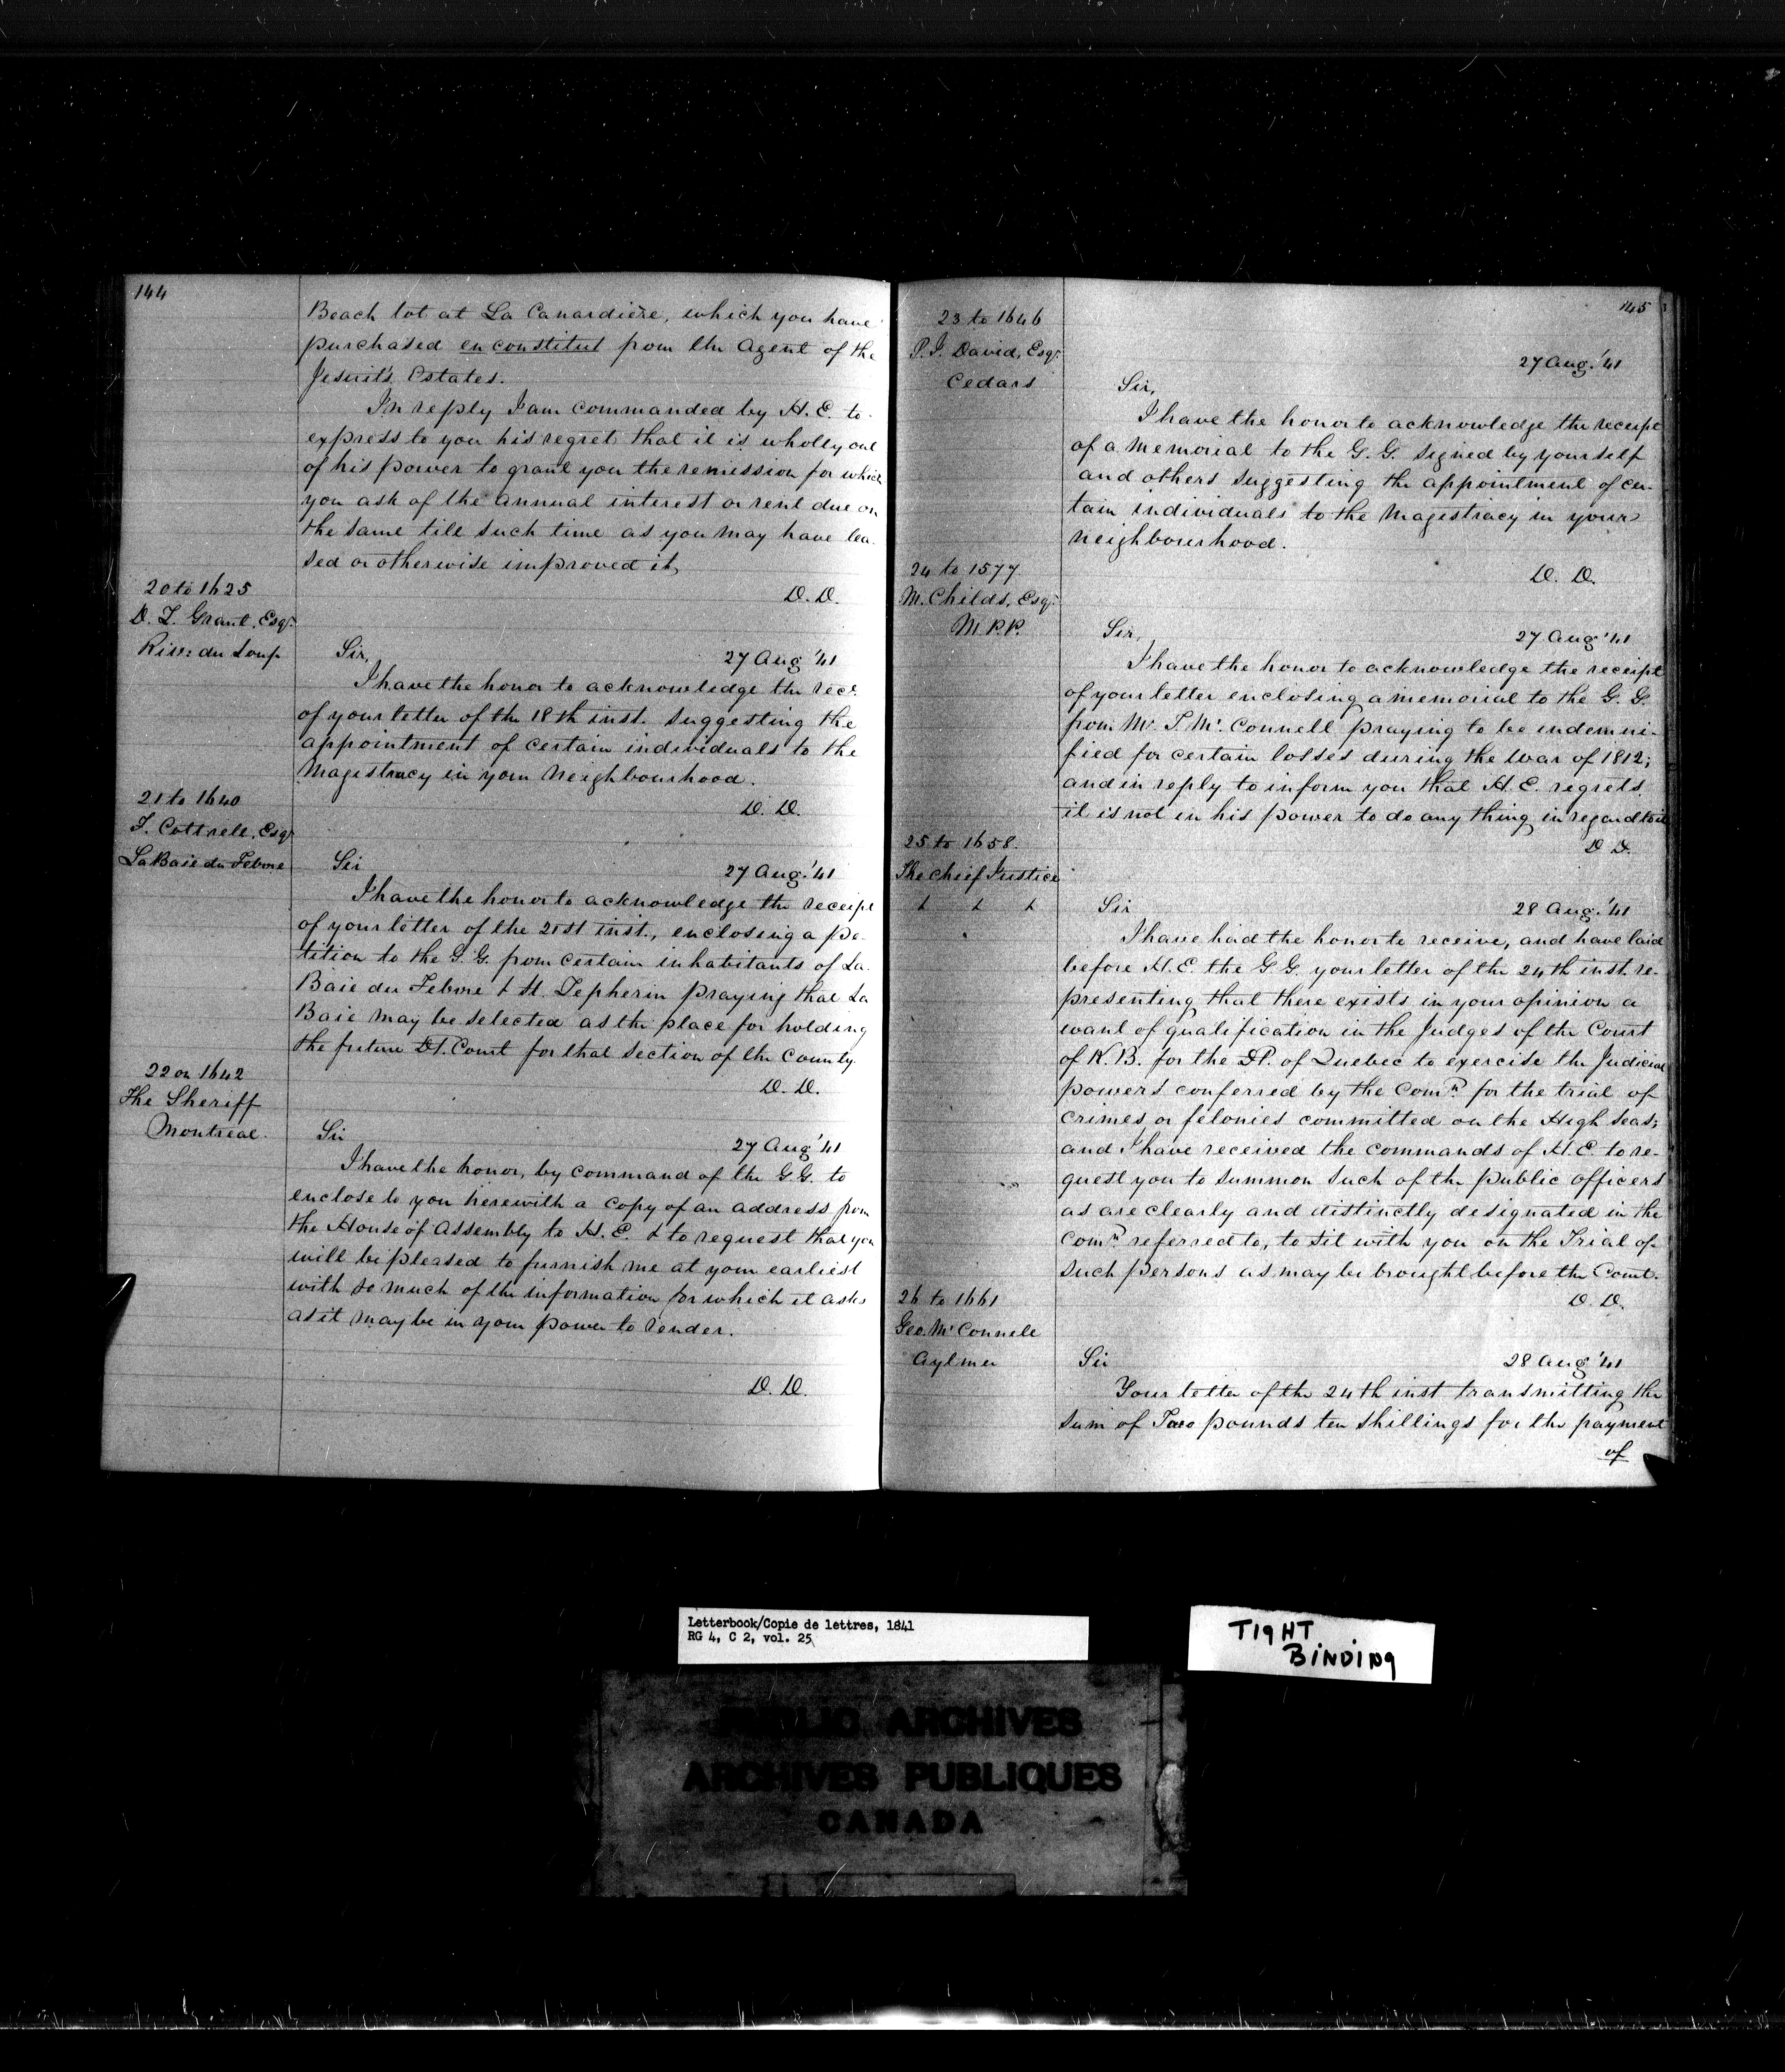 144
Beach lot at La Canardière, which you have
purchased en constitut from the Agent of the
Jesuit's Estates.
In reply I am commanded by H. E. to
express to you his regret that it is wholly out
of his power to grant you the remission for which
you ask of the annual interest or rent due on
the same till such time as you may have lea-
sed or otherwise improved it,
D. D.
20 to 1625
D. L. Grant, Esqr.
Riv: du Loup
Sir, 27 Aug '41
I have the honor to acknowledge the rect.
of your letter of the 18th inst. suggesting the
appointment of certain individuals to the
Magestracy in your neighbourhood.
D. D.
21 to 1640
J. Cottrell, Esqr
La Baie du Febvre
Sir 27 Aug. '41
I have the honor to acknowledge the receipt
of your letter of the 21st inst., enclosing a pe-
tition to the G. G. from certain inhabitants of La
Baie du Febvre & St. Zepherin praying that La
Baie may be selected as the place for holding
the future Dt. Court for that section of the county.
D. D.
22 on 1642
The Sheriff
Montreal.
Sir 27 Aug '41
I have the honor, by command of the G.G. to
enclose to you herewith a copy of an address from
the House of Assembly to H. E. & to request that you
will be pleased to furnish me at your earliest
with so much of the information for which it asks
as it may be in your power to render.
D. D.
145
23 to 1646
P. J. David, Esqr.
Cedars
27 Aug. '41
Sir,
I have the honor to acknowledge the receipt
of a memorial to the G. G. signed by yourself
and others suggesting the appointment of cer-
tain individuals to the Magestracy in your
neighbourhood.
D. D.
24 to 1577
M. Childs, Esqr.
M.P.P.
Sir, 27 Aug '41
I have the honor to acknowledge the receipt
of your letter enclosing a memorial to the G. G.
from Mr. S. McConnell praying to be indemni-
fied for certain losses during the War of 1812;
and in reply to inform you that H. E. regrets
it is not in his power to do any thing in regard to it
D D.
25 to 1658.
The Chief Justice
& & &
Sir 28 Aug. '41
I have had the honor to receive, and have laid
before H. E. the G. G. your letter of the 24th inst. re-
presenting that there exists in your opinion a
want of qualification in the Judges of the Court
of K. B. for the Dt. of Quebec to exercise the Judicial
powers conferred by the Comn. for the trial of
crimes or felonies committed on the High Seas;
and I have received the commands of H. E. to re-
quest you to summon such of the public officers
as are clearly and distinctly designated in the
Comn. referred to, to sit with you on the Trial of
such persons as may be brought before the Court.
D. D.
26 to 1661
Geo. McConnell
Aylmer
Sir 28 Aug '41
Your letter of the 24th inst transmitting the
sum of Two pounds ten shillings for the payment
of
Letterbook/Copie de lettres, 1841
RG 4, C 2, vol. 25
TIGHT
BINDING
PUBLIC ARCHIVES
ARCHIVES PUBLIQUES
CANADA